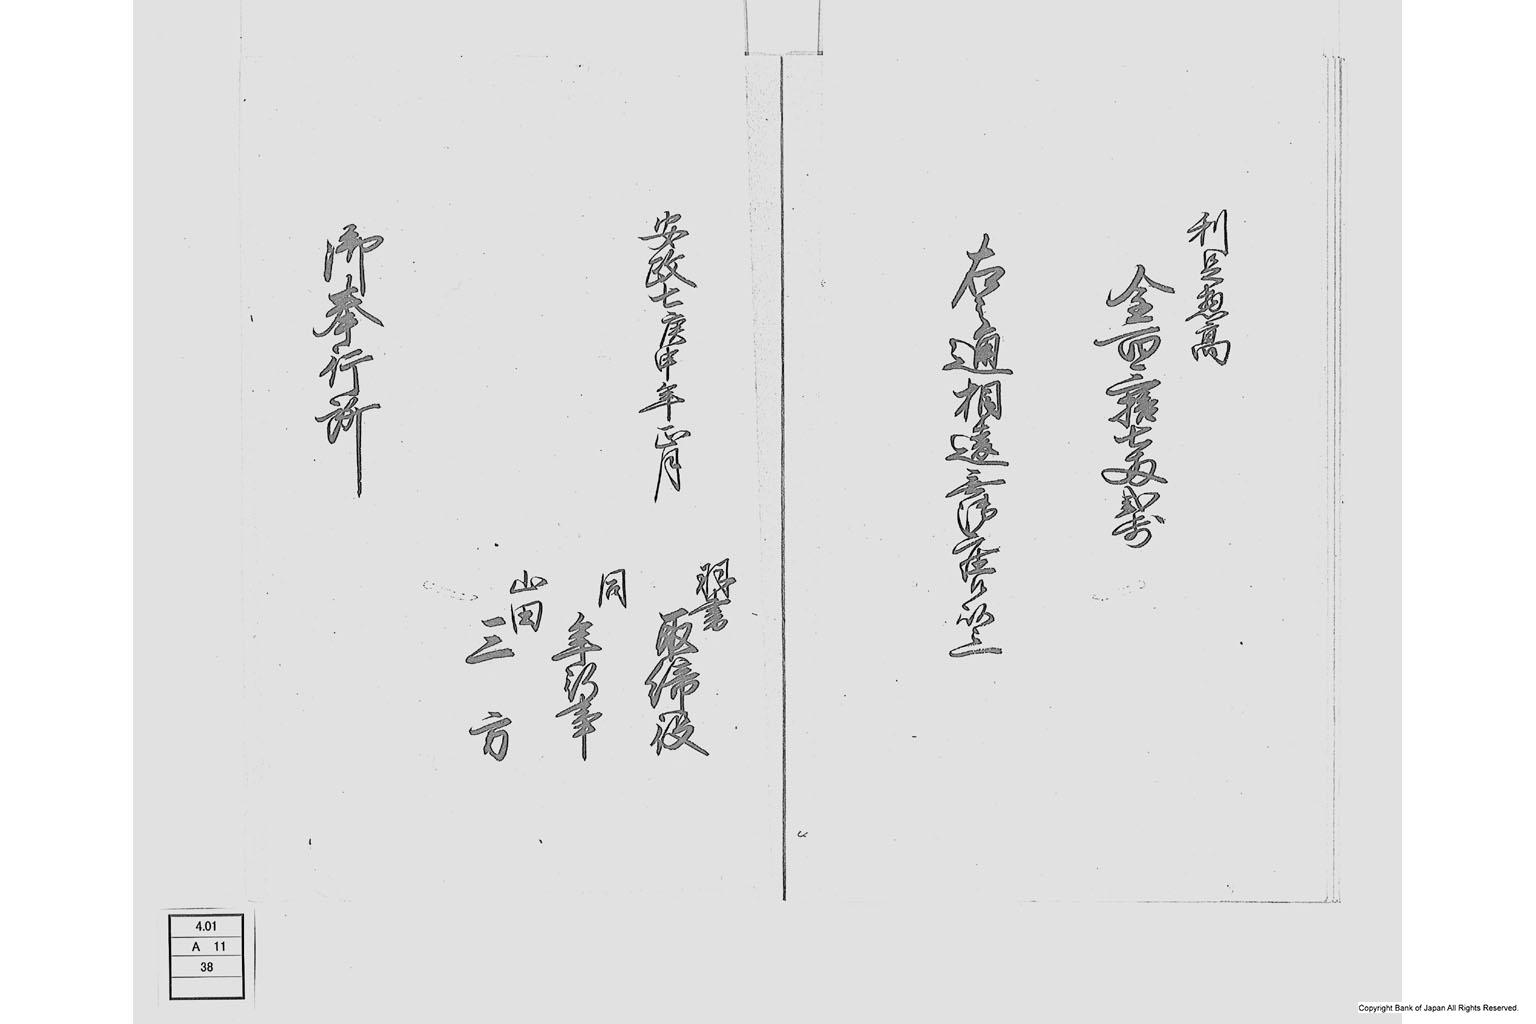 利足惣高
金四百拾七両弐歩
右之通相違無御座候以上
安政七庚申年正月
羽書
取締役
同
年行事
山田
三方
御奉行所
4.01
A 11
38
Copyright Bank of Japan All Rights Reserved.